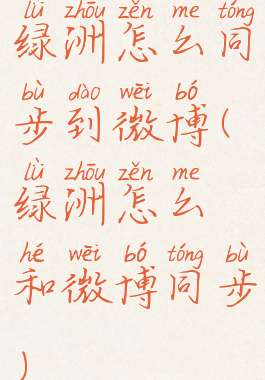 lǜ zhōu zěn me tóng
绿洲怎么同
bù dào wēi bó
步到微博(
lǜ zhōu zěn me
绿洲怎么
hé wēi bó tóng bù
和微博同步
)